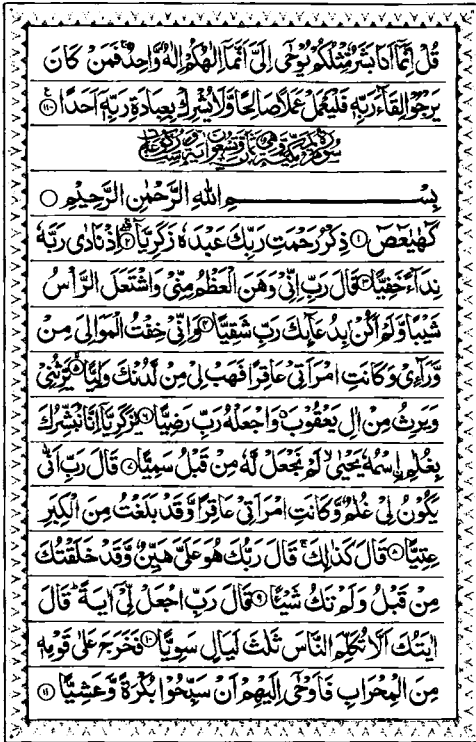 قُلْ اِنَّمَاۤ اَنَا بَشَرٌ مِّثْلُكُمْ يُوْحٰۤى اِلَيَّ اَنَّمَاۤ اِلٰهُكُمْ اِلٰهٌ وَّاحِدٌ ۚ فَمَنْ كَانَ
يَرْجُوْا لِقَآءَ رَبِّهٖ فَلْيَعْمَلْ عَمَلًا صَالِحًا وَّلَا يُشْرِكْ بِعِبَادَةِ رَبِّهٖۤ اَحَدًا ۝۱۱۰
بِسْمِ اللهِ الرَّحْمٰنِ الرَّحِيْمِ ۝
كٓهٰيٰعٓصٓ ۝۱ ذِكْرُ رَحْمَتِ رَبِّكَ عَبْدَهٗ زَكَرِيَّا ۝۲ اِذْ نَادٰى رَبَّهٗ
نِدَآءً خَفِيًّا ۝۳ قَالَ رَبِّ اِنِّيْ وَهَنَ الْعَظْمُ مِنِّيْ وَاشْتَعَلَ الرَّاْسُ
شَيْبًا وَّلَمْ اَكُنْۢ بِدُعَآئِكَ رَبِّ شَقِيًّا ۝۴ وَاِنِّيْ خِفْتُ الْمَوَالِيَ مِنْ
وَّرَآءِيْ وَكَانَتِ امْرَاَتِيْ عَاقِرًا فَهَبْ لِيْ مِنْ لَّدُنْكَ وَلِيًّا ۝۵ يَّرِثُنِيْ
وَيَرِثُ مِنْ اٰلِ يَعْقُوْبَ ۖ وَاجْعَلْهُ رَبِّ رَضِيًّا ۝۶ يٰزَكَرِيَّاۤ اِنَّا نُبَشِّرُكَ
بِغُلٰمِ ۨاسْمُهٗ يَحْيٰى ۙ لَمْ نَجْعَلْ لَّهٗ مِنْ قَبْلُ سَمِيًّا ۝۷ قَالَ رَبِّ اَنّٰى
يَكُوْنُ لِيْ غُلٰمٌ وَّكَانَتِ امْرَاَتِيْ عَاقِرًا وَّقَدْ بَلَغْتُ مِنَ الْكِبَرِ
عِتِيًّا ۝۸ قَالَ كَذٰلِكَ ۚ قَالَ رَبُّكَ هُوَ عَلَيَّ هَيِّنٌ وَّقَدْ خَلَقْتُكَ
مِنْ قَبْلُ وَلَمْ تَكُ شَيْـًٔا ۝۹ قَالَ رَبِّ اجْعَلْ لِّيْۤ اٰيَةً ؕ قَالَ
اٰيَتُكَ اَلَّا تُكَلِّمَ النَّاسَ ثَلٰثَ لَيَالٍ سَوِيًّا ۝۱۰ فَخَرَجَ عَلٰى قَوْمِهٖ
مِنَ الْمِحْرَابِ فَاَوْحٰۤى اِلَيْهِمْ اَنْ سَبِّحُوْا بُكْرَةً وَّعَشِيًّا ۝۱۱